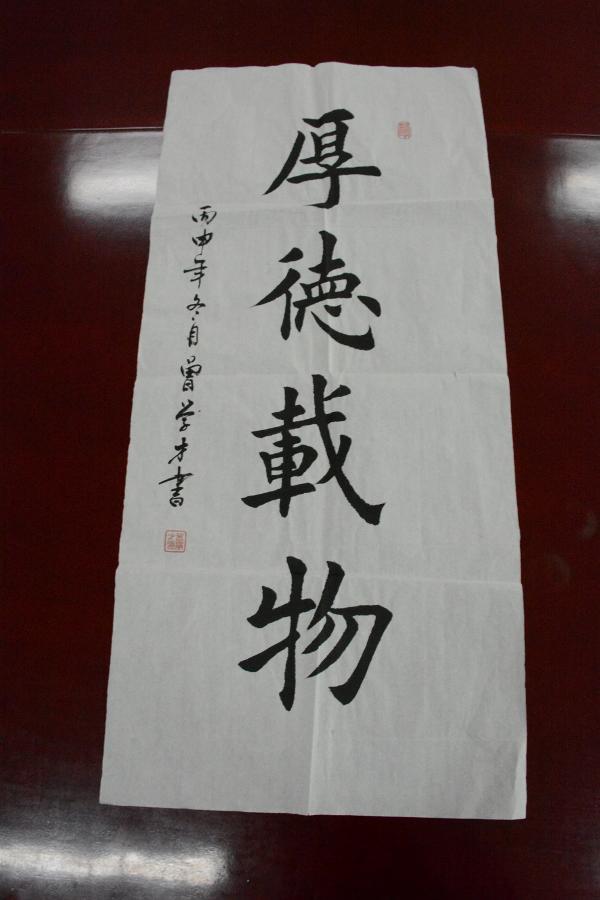 厚德載物
丙申年冬月曾学才書